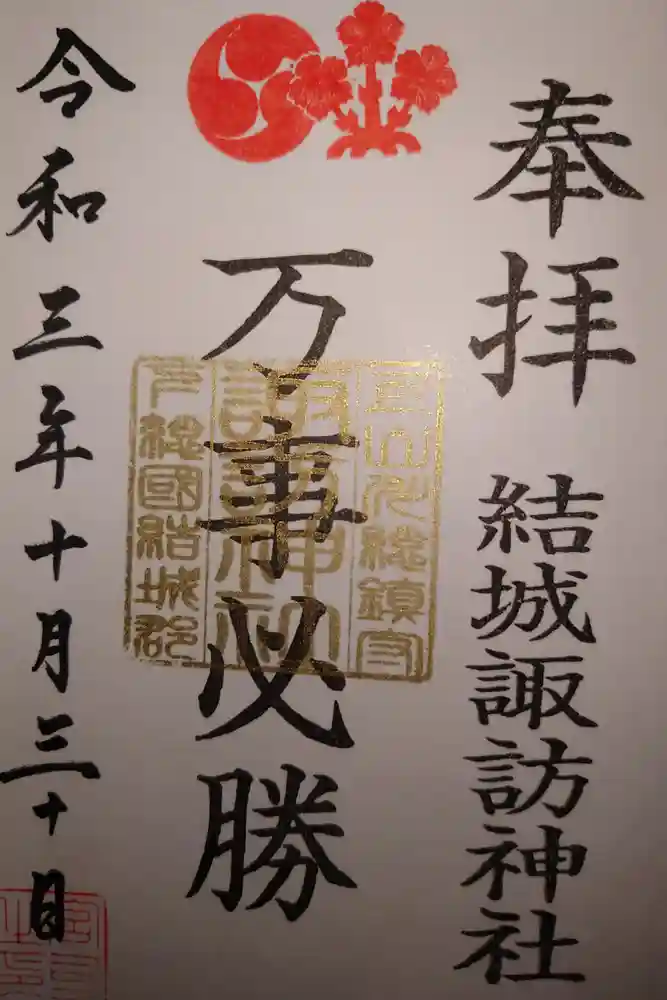 奉拝 結城諏訪神社
万事必勝
諏訪神社
下総國結城郡
令和三年十月三十日